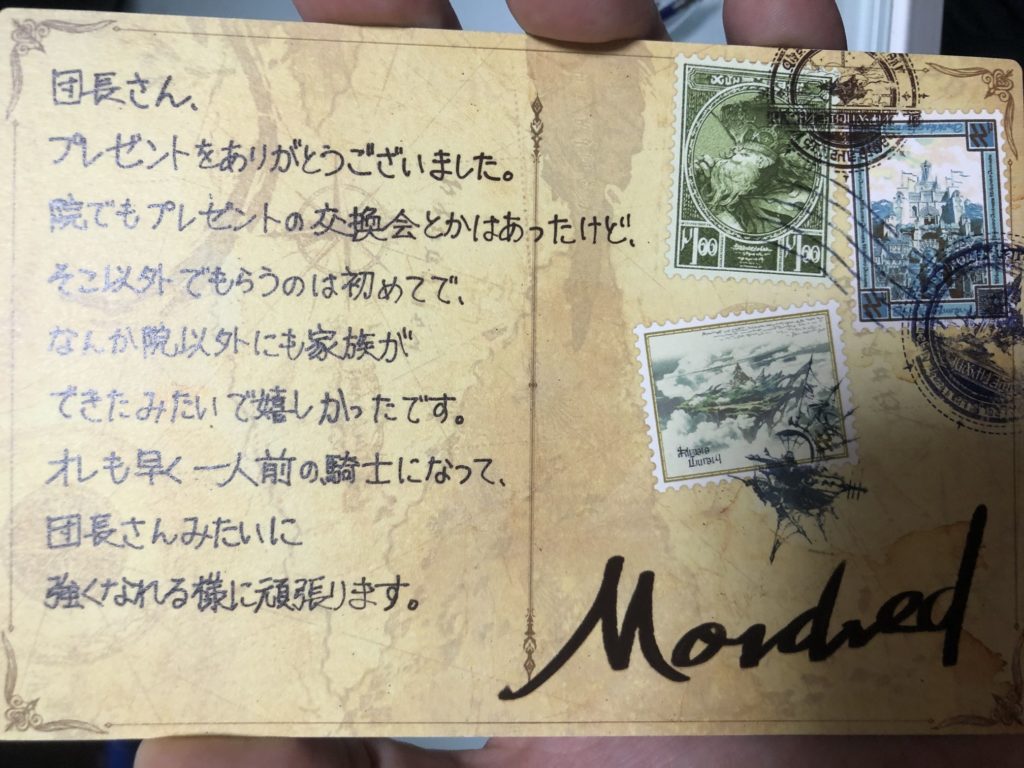 団長さん、
プレゼントをありがとうございました。
院でもプレゼントの交換会とかはあったけど、
そこ以外でもらうのは初めてで、
なんか院以外にも家族が
できたみたいで嬉しかったです。
オレも早く一人前の騎士になって、
団長さんみたいに
強くなれる様に頑張ります。
1.00 1.00
Mordred